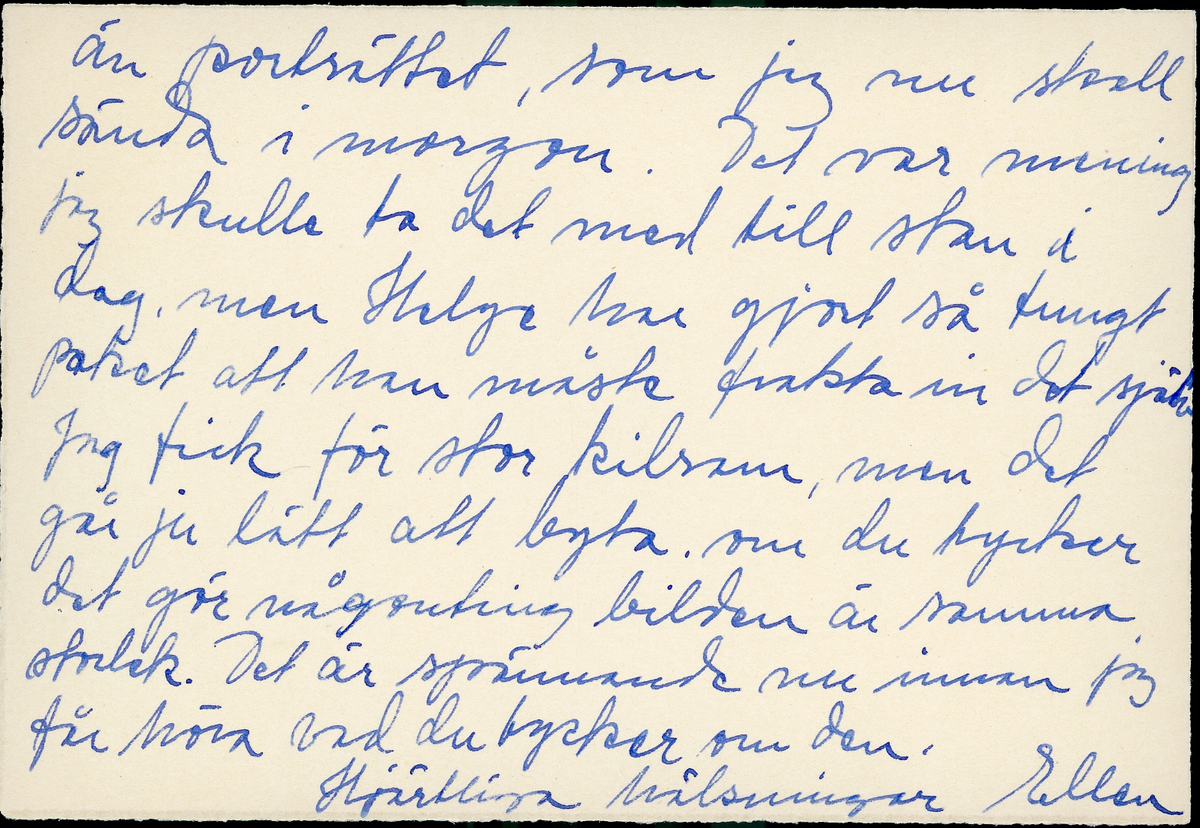 än porträttet, som jag nu skall
sända i morgon. Det var mening
jag skulle ta det med till stan i
dag, men Helge har gjort så tungt
paket att han måste frakta in det själv
Jag fick för stor kilram, men det
går ju lätt att byta. om du tycker
det gör någonting bilden är samma
storlek. Det är spännande nu innan jag
får höra vad du tycker om den.
Hjärtliga hälsningar Ellen